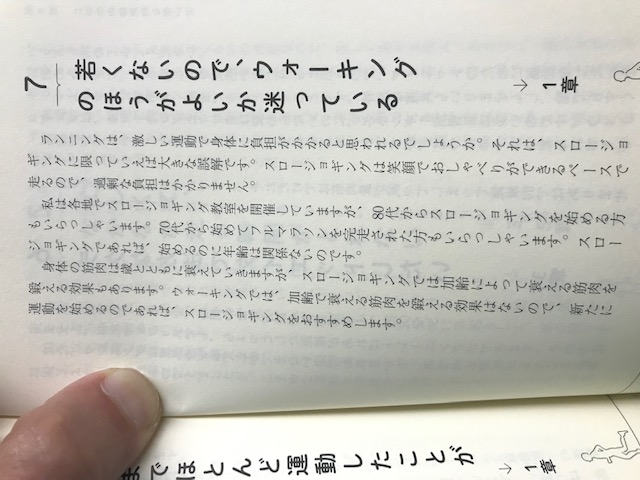 7
若くないので、ウォーキング
のほうがよいか迷っている
→1章
ランニングは、激しい運動で身体に負担がかかると思われるでしょうか。それは、スロージョ
ギングに限っていえば大きな誤解です。スロージョギングは笑顔でおしゃべりができるペースで
走るので、過剰な負担はかかりません。
私は各地でスロージョギング教室を開催していますが、80代からスロージョギングを始める方
もいらっしゃいます。70代から始めてフルマラソンを完走された方もいらっしゃいます。スロー
ジョギングであれば、始めるのに年齢は関係ないのです。
身体の筋肉は歳とともに衰えていきますが、スロージョギングでは加齢によって衰える筋肉を
鍛える効果もあります。ウォーキングでは、加齢で衰える筋肉を鍛える効果はないので、新たに
運動を始めるのであれば、スロージョギングをおすすめします。
までほとんど運動したことが
→1章